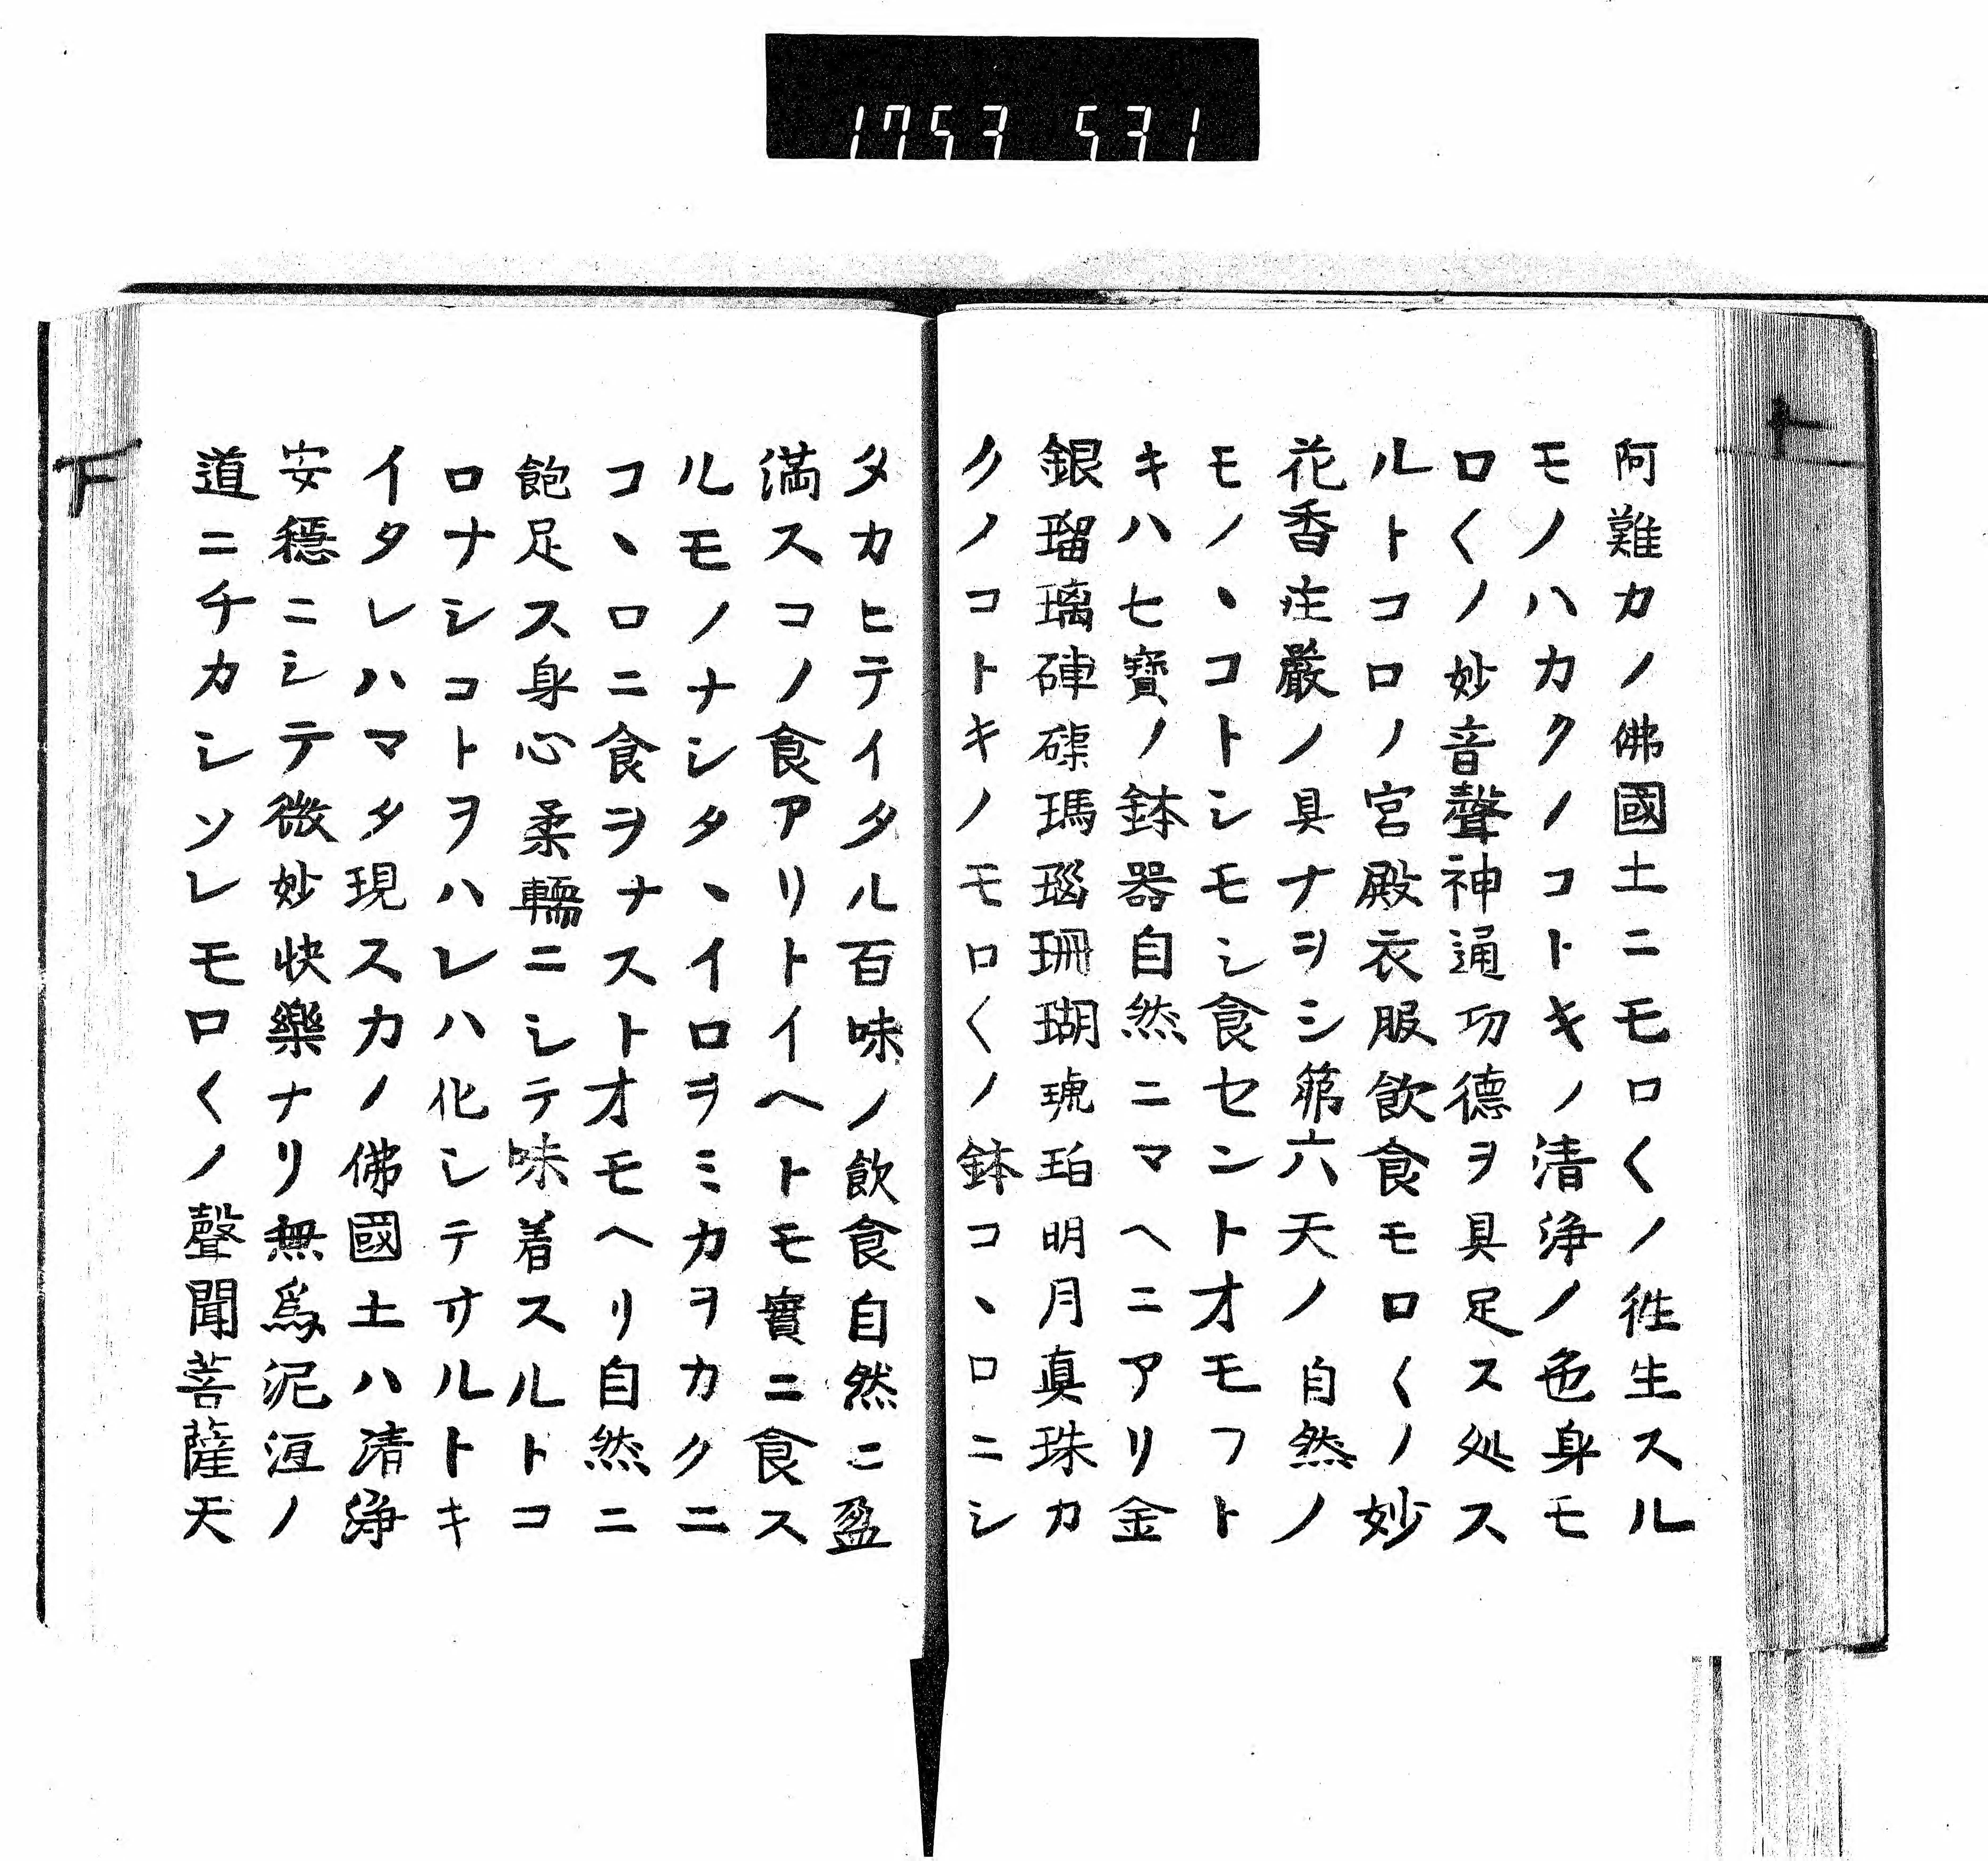 1753 531
上
阿難カノ佛國土ニモロ〱ノ徃生スル
モノハカクノコトキノ清浄ノ色身モ
ロ〱ノ妙音聲神通功德ヲ具足ス処ス
ルトコロノ宮殿衣服飲食モロ〱ノ妙
花香庄嚴ノ具ナヲシ第六天ノ自然ノ
モノヽコトシモシ食セントオモフト
キハ七寶ノ鉢器自然ニマヘニアリ金
銀瑠璃硨磲瑪瑙珊瑚琥珀明月真珠カ
クノコトキノモロ〱ノ鉢コヽロニシ
タカヒテイタル百味ノ飲食自然ニ盈
満スコノ食アリトイヘトモ實ニ食ス
ルモノナシタヽイロヲミカヲカクニ
コヽロニ食ヲナストオモヘリ自然ニ
飽足ス身心柔輭ニシテ味着スルトコ
ロナシコトヲハレハ化シテサルトキ
イタレハマタ現スカノ佛國土ハ清浄
安穏ニシテ微妙快樂ナリ無爲泥洹ノ
道ニチカシソレモロ〱ノ聲聞菩薩天
下